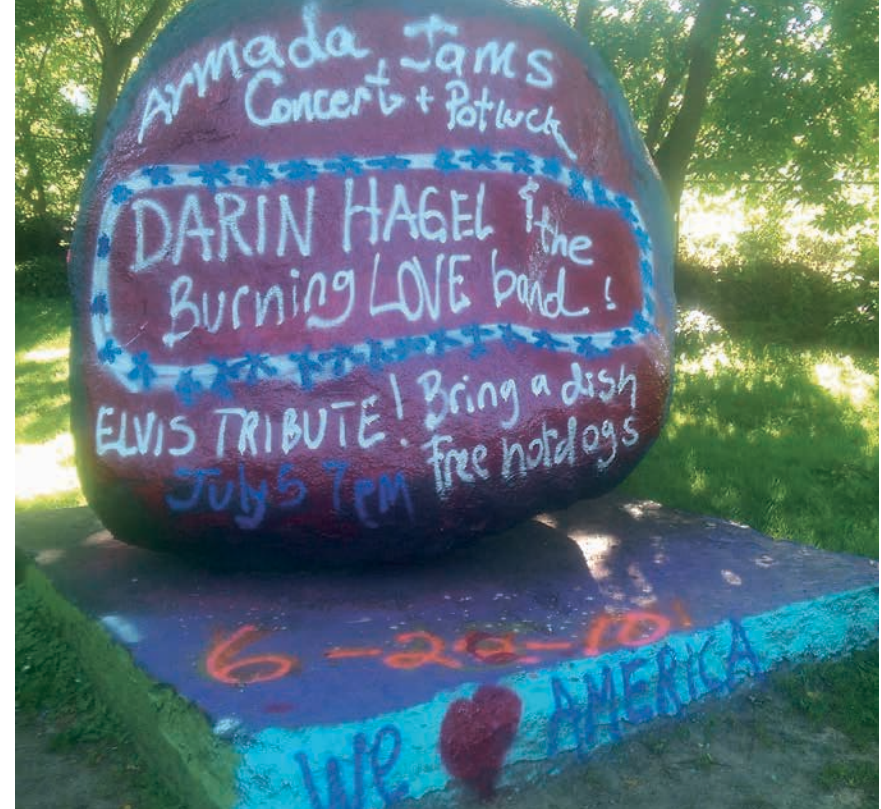 Armada Jams
Concert + Potluck
DARIN HAGEL & the
Burning LOVE band!
ELVIS TRIBUTE! Bring a dish
July 5 7pm free hotdogs
6-22-10
We AMERICA